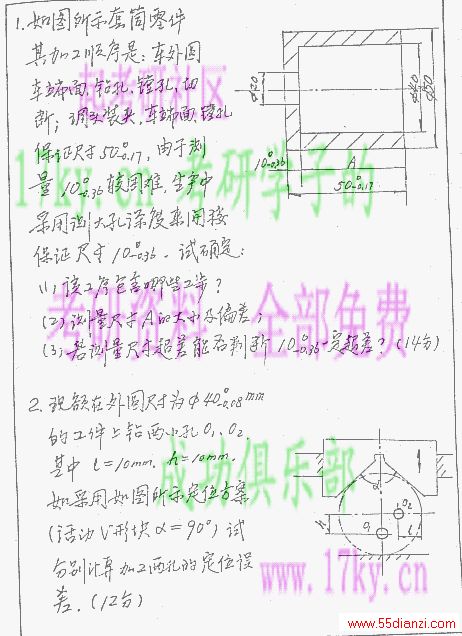 1. 如图所示套筒零件
其加工顺序是：车外圆
车端面，钻孔，镗孔，切
断；调头装夹，车端面，镗孔
保证尺寸50⁰₋₀.₁₇，由于测
量10⁰₋₀.₃₆较困难，生产中
采用测大孔深度来间接
保证尺寸10⁰₋₀.₃₆。试确定：
(1) 该工序包含哪些工步？
(2) 测量尺寸A的大小及偏差；
(3) 若测量尺寸超差能否判断10⁰₋₀.₃₆一定超差？(14分)
φ20
φ40
φ50
10⁰₋₀.₃₆
A
50⁰₋₀.₁₇
2. 现欲在外圆尺寸为φ40⁰₋₀.₀₈mm
的工件上钻两小孔O₁、O₂。
其中 l=10mm，h=10mm。
如采用如图所示定位方案
(活动V形块α=90°) 试
分别计算加工两孔的定位误
差。(12分)
α
O₂
O₁
h
l
起考研社区
17ky.cn 考研学子的
考研资料 全部免费
成功俱乐部
www.17ky.cn
www.55dianzi.com